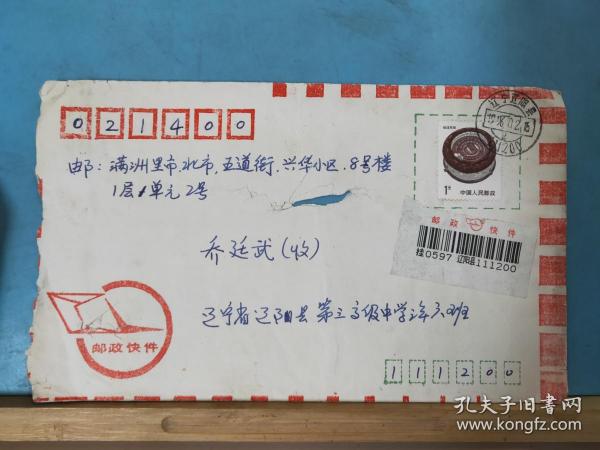 021400
邮：满洲里市，北市，五道街，兴华小区，8号楼
1层1单元2号
乔廷武（收）
辽宁省辽阳县第三高级中学
班
111200
1元
中国人民邮政
邮政快件
挂0597 辽阳县111200
邮政快件
辽宁辽阳县
孔夫子旧书网
www.kongfz.com